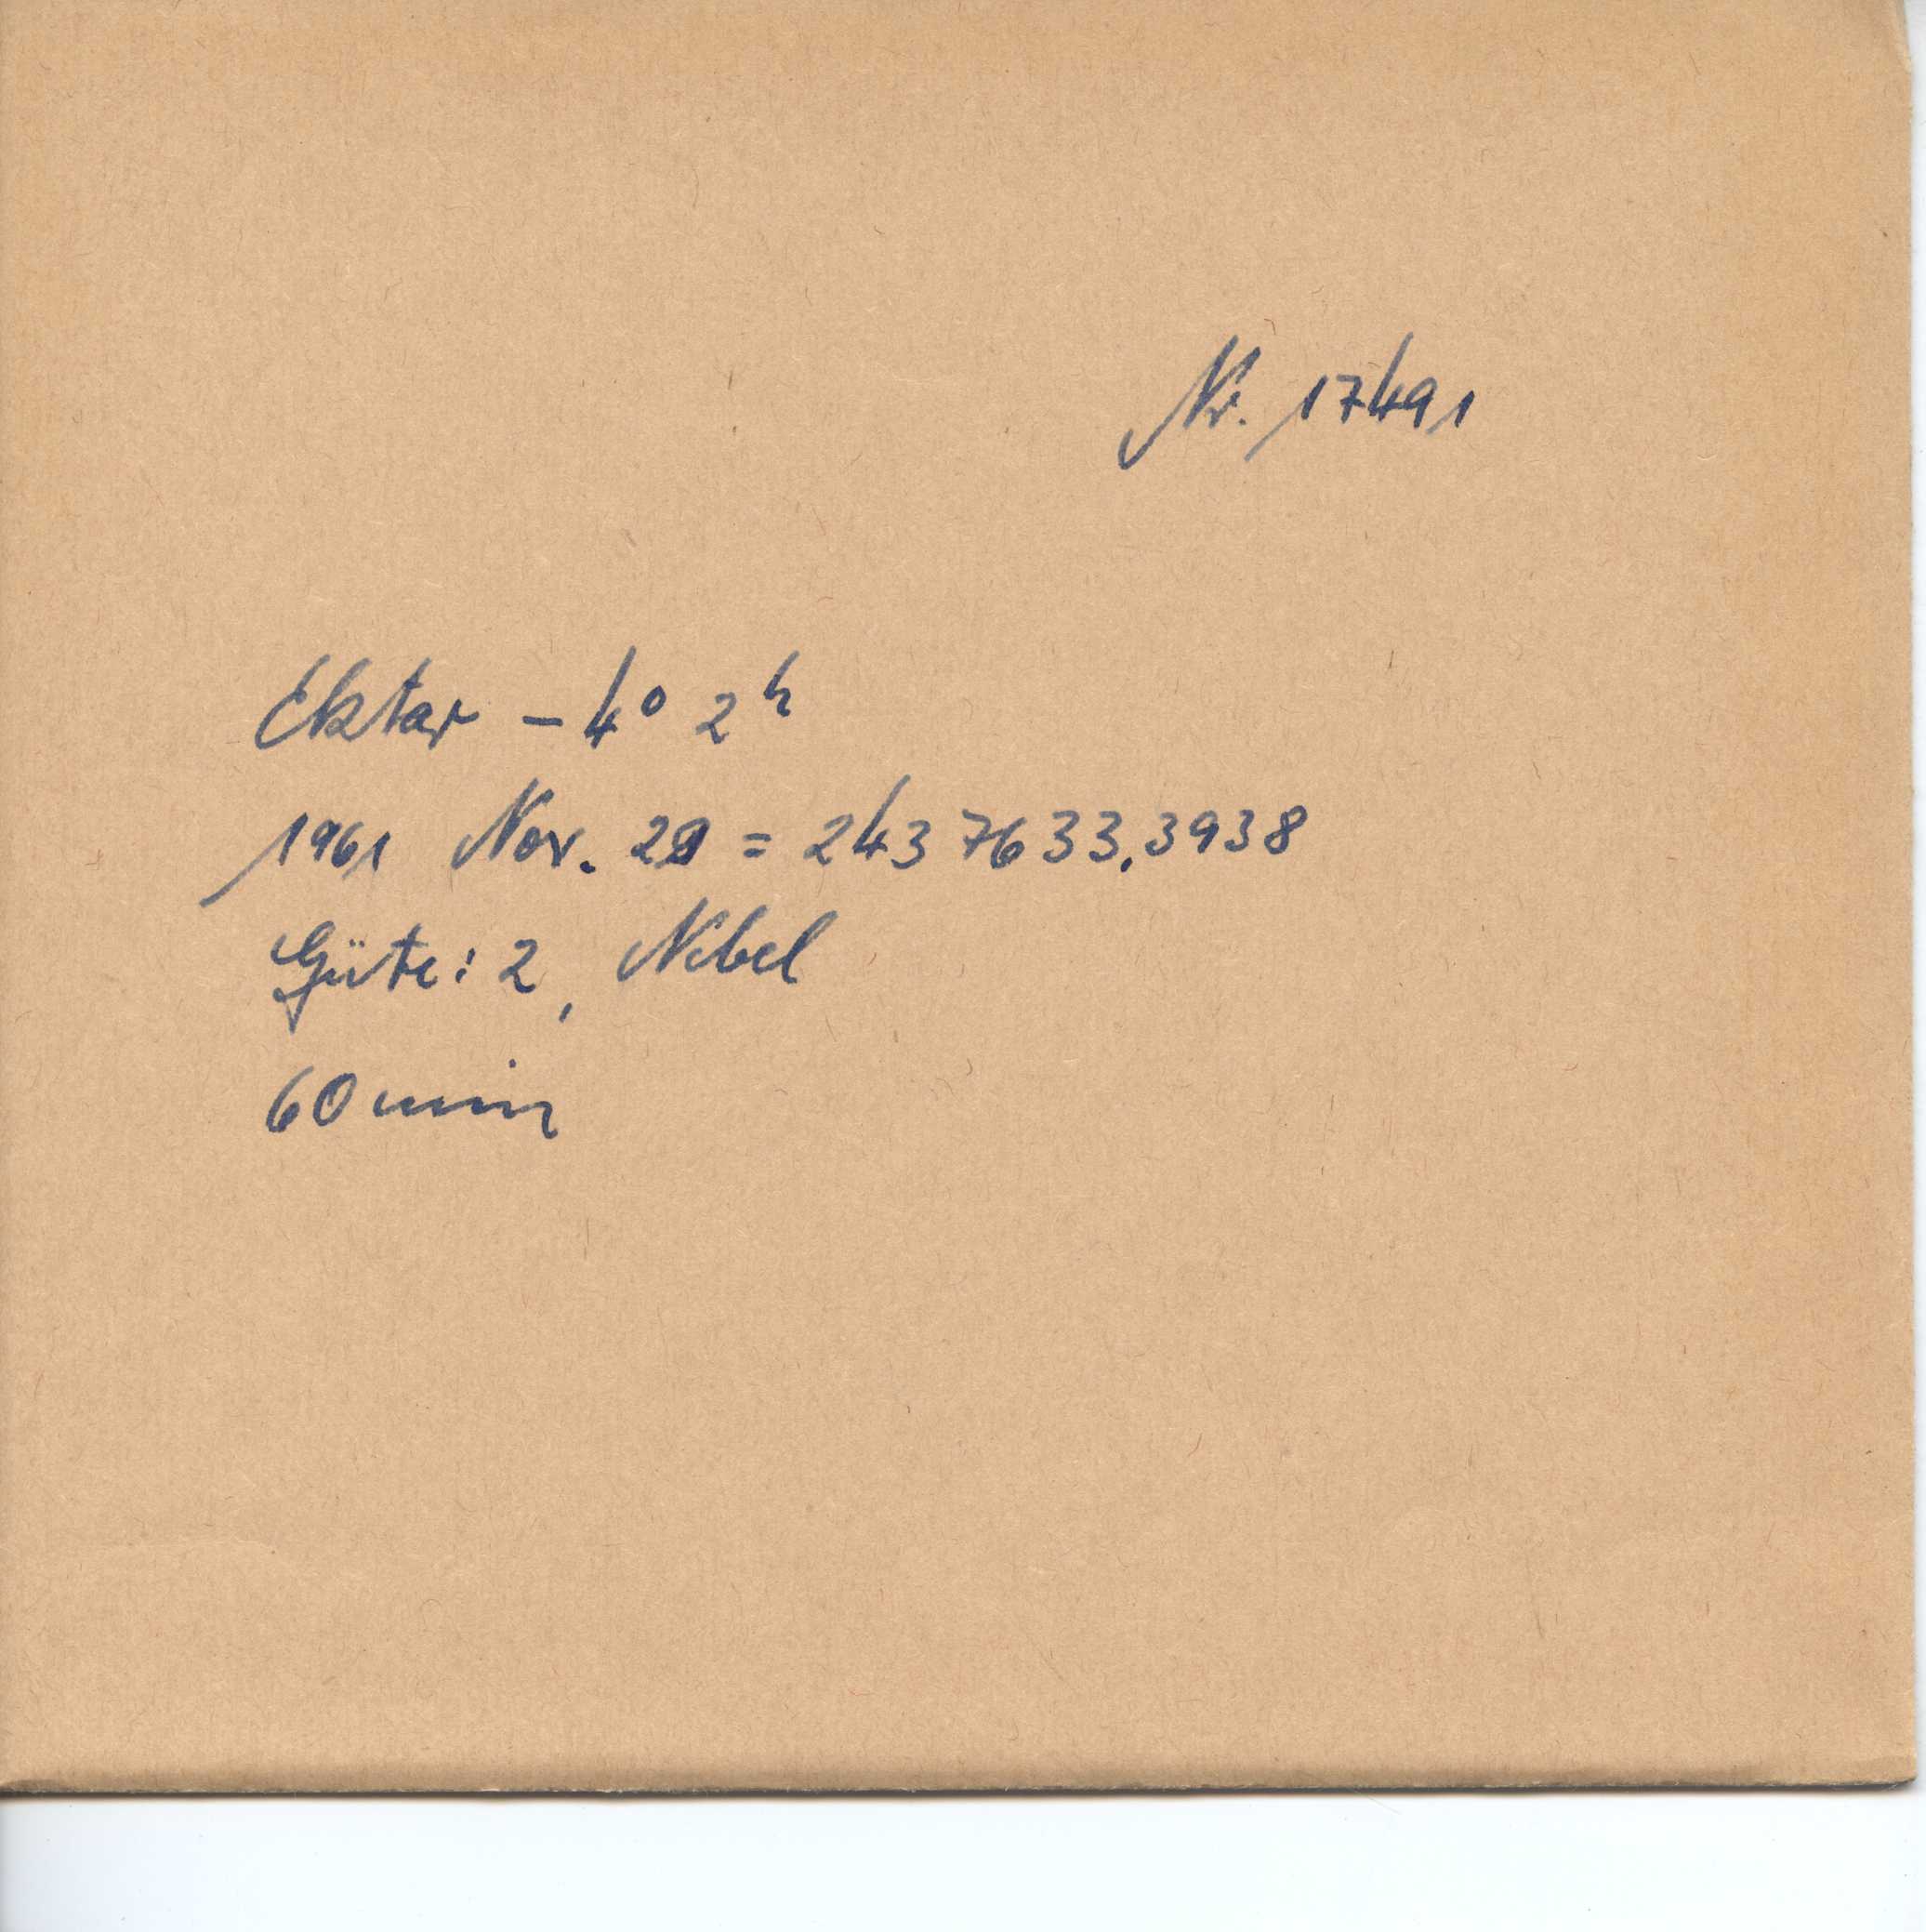 Nr. 17491
Ektar – 4° 2ʰ
1961 Nov. 29 = 243 7633.3938
Güte: 2, Nebel
60 min